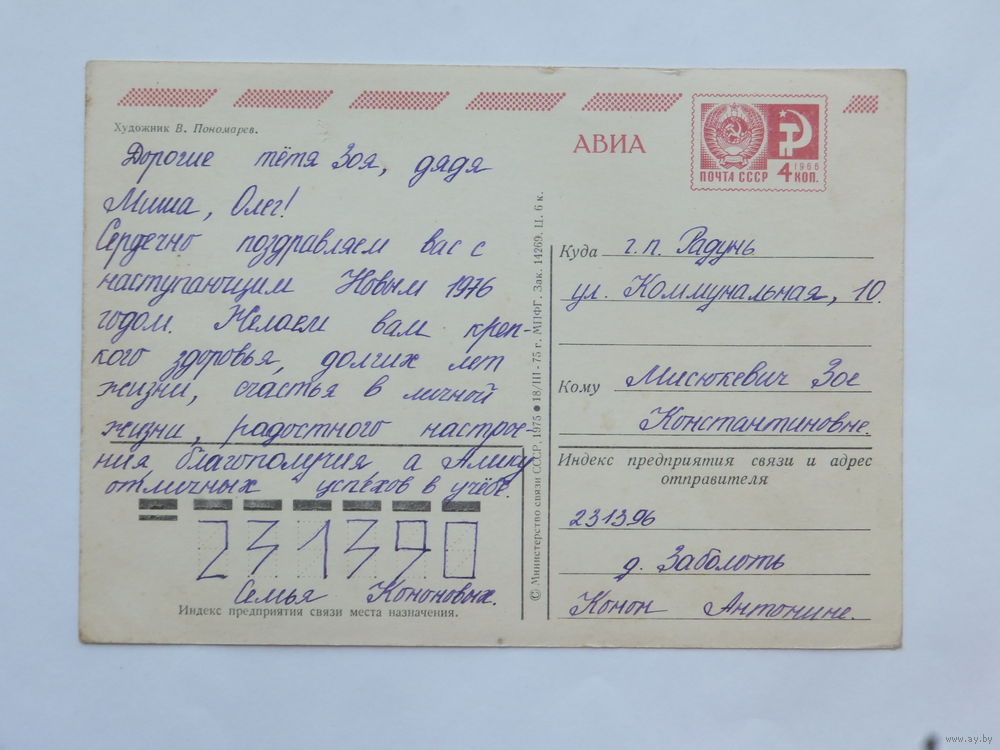 Художник В. Пономарев.
Дорогие тётя Зоя, дядя
Миша, Олег!
Сердечно поздравляем вас с
наступающим Новым 1976
годом. Желаем вам креп-
кого здоровья, долгих лет
жизни, счастья в личной
жизни, радостного настрое-
ния, благополучия, а Алику
отличных успехов в учёбе.
231390
Семья Кононовых.
Индекс предприятия связи места назначения.
© Министерство связи СССР. 1975 ● 18/III - 75 г. МПФГ. Зак. 14269. Ц. 6 к.
АВИА
ПОЧТА СССР 4 КОП. 1966
Куда г.п. Радунь
ул. Коммунальная, 10.
Кому Мисюкевич Зое
Константиновне.
Индекс предприятия связи и адрес
отправителя
231396
д. Заболоть
Конон Антонине.
www.ay.by